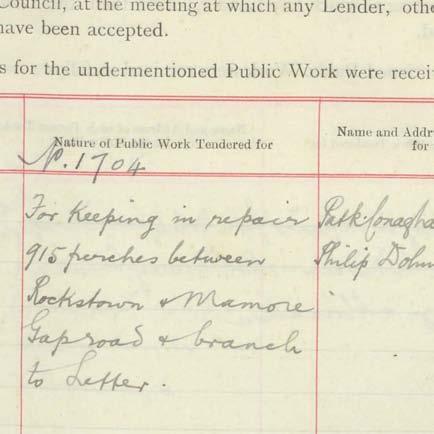 Council, at the meeting at which any Lender, othe
have been accepted.
s for the undermentioned Public Work were recei
Nature of Public Work Tendered for
Name and Addr
for
No. 1704
For Keeping in repair
915 perches between
Rockstown & Mamore
Gap road & branch
to Letter.
Patk Conagha
Philip Doh